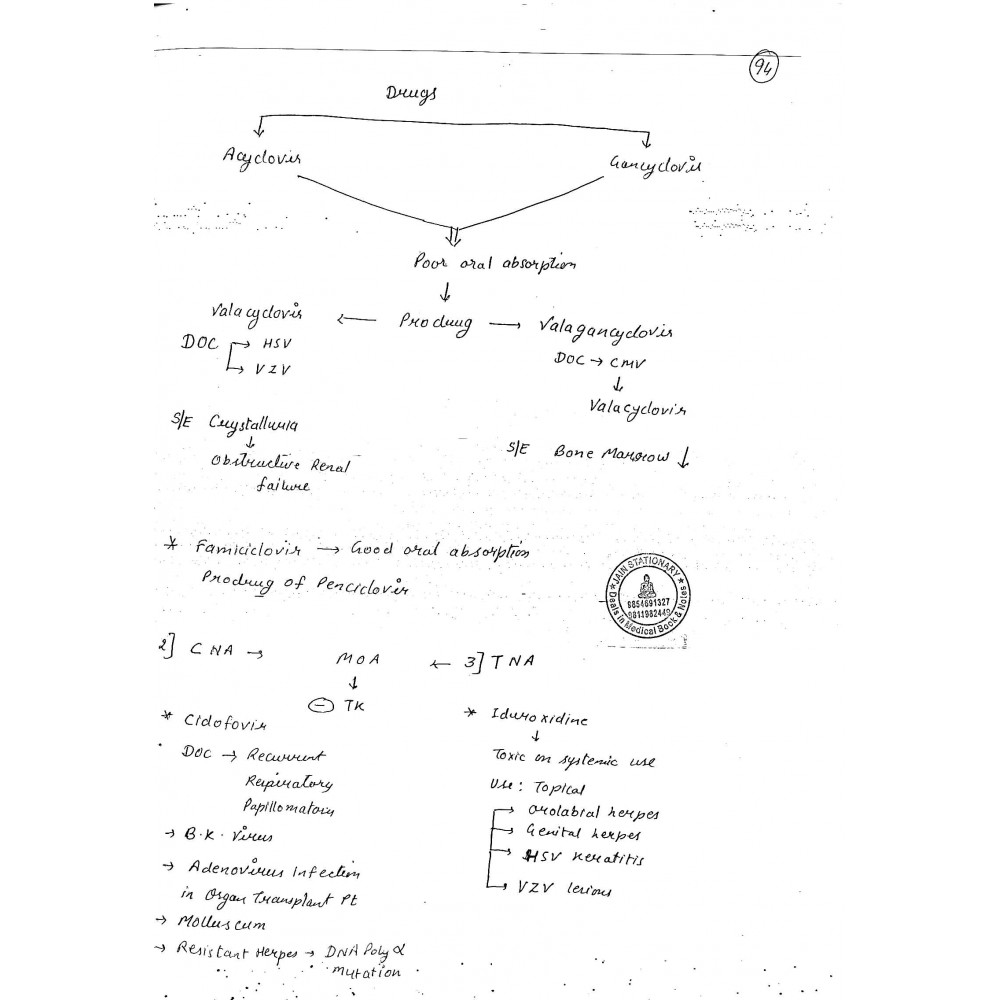 94
Drugs
Acyclovir
Gancyclovir
Poor oral absorption
Valacyclovir ← Prodrug → Valagancyclovir
DOC → HSV
→ VZV
DOC → CMV
↓
Valacyclovir
S/E Crystalluria
↓
Obstructive Renal
failure
S/E Bone Marrow ↓
* Famiciclovir → Good oral absorption
Prodrug of Penciclovir
★ JAIN STATIONARY ★
9854691327
9811982449
Deals in Medical Book & Notes
2] CNA → MOA ← 3] TNA
↓
⊖ TK
* Cidofovir
DOC → Recurrent
Respiratory
Papillomatosis
→ B.K. Virus
→ Adenovirus Infection
in Organ Transplant Pt
→ Molluscum
→ Resistant Herpes → DNA Poly α
mutation
* Iduroxidine
↓
Toxic on systemic use
Use: Topical
→ Orolabial herpes
→ Genital herpes
→ HSV keratitis
→ VZV lesions